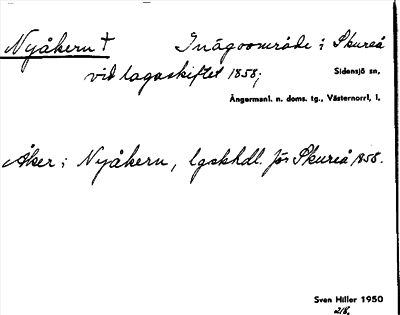 Nyåkern † Inägoområde i Skureå
vid lagaskiftet 1858;
Sidensjö sn,
Ångermanl. n. doms. tg., Västernorrl, l,
Åker i Nyåkern, lgskhdl. för Skureå 1858.
Sven Hiller 1950
2/8.